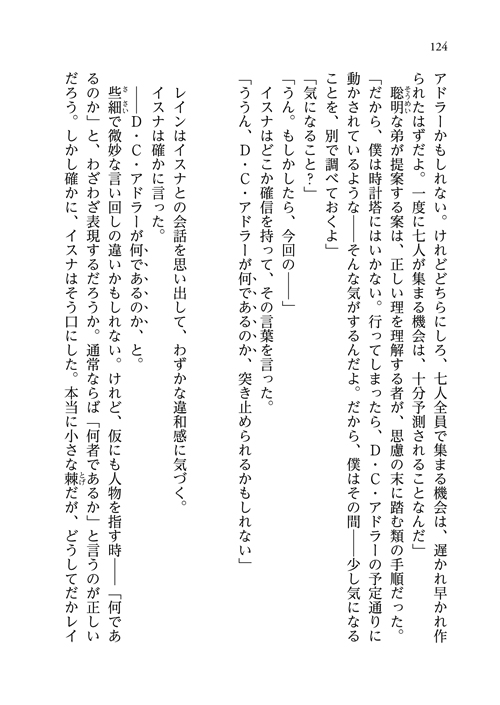 124
アドラーかもしれない。けれどどちらにしろ、七人全員で集まる機会は、遅かれ早かれ作
られたはずだよ。一度に七人が集まる機会は、十分予測されることなんだ」
聡明な弟が提案する案は、正しい理を理解する者が、思慮の末に踏む類の手順だった。
「だから、僕は時計塔にはいかない。行ってしまったら、D・C・アドラーの予定通りに
動かされているような――そんな気がするんだよ。だから、僕はその間――少し気になる
ことを、別で調べておくよ」
「気になること？」
「うん。もしかしたら、今回の――」
イスナはどこか確信を持って、その言葉を言った。
「ううん、D・C・アドラーが何であるのか、突き止められるかもしれない」
レインはイスナとの会話を思い出して、わずかな違和感に気づく。
イスナは確かに言った。
――D・C・アドラーが何であるのか、と。
些細で微妙な言い回しの違いかもしれない。けれど、仮にも人物を指す時――「何であ
るのか」と、わざわざ表現するだろうか。通常ならば「何者であるか」と言うのが正しい
だろう。しかし確かに、イスナはそう口にした。本当に小さな棘だが、どうしてだかレイ